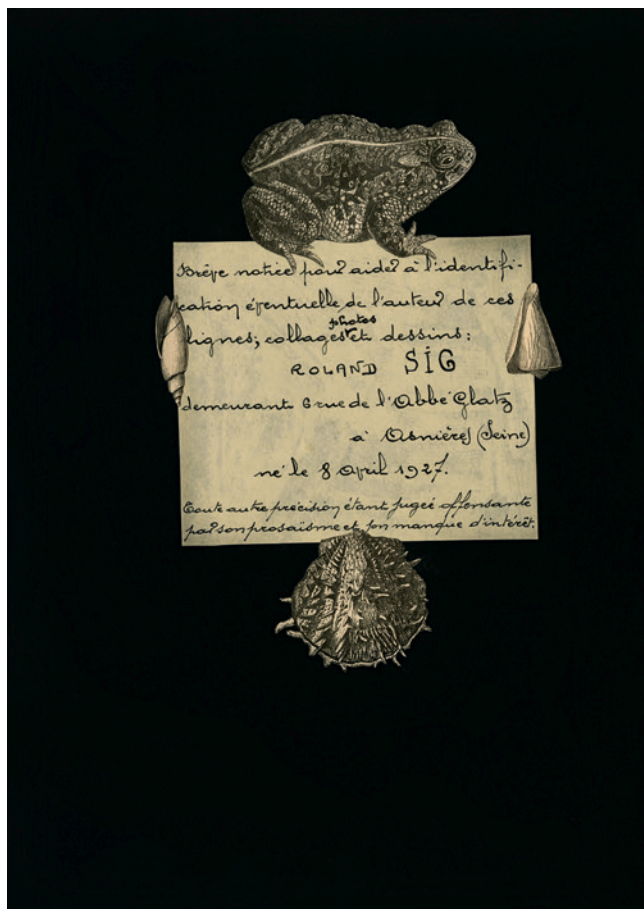 Brève notice pour aider à l'identifi-
cation éventuelle de l'auteur de ces
photos
lignes, collages et dessins:
ROLAND SIG
demeurant 6 rue de l'Abbé Glatz
à Asnières (Seine)
né le 8 April 1927.
Toute autre précision étant jugée offensante
par son prosaïsme et son manque d'intérêt.